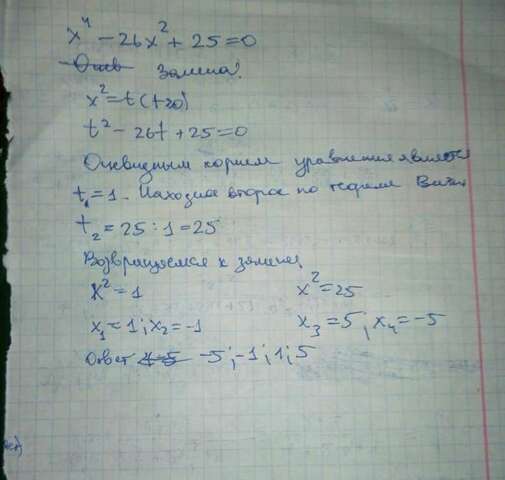 x⁴ − 26x² + 25 = 0
Замена:
x² = t (t≥0)
t² − 26t + 25 = 0
Очевидным корнем уравнения является
t₁ = 1. Находим второе по теореме Виета
t₂ = 25 : 1 = 25
Возвращаемся к замене
x² = 1 x² = 25
x₁ = 1; x₂ = −1 x₃ = 5; x₄ = −5
Ответ −5; −1; 1; 5